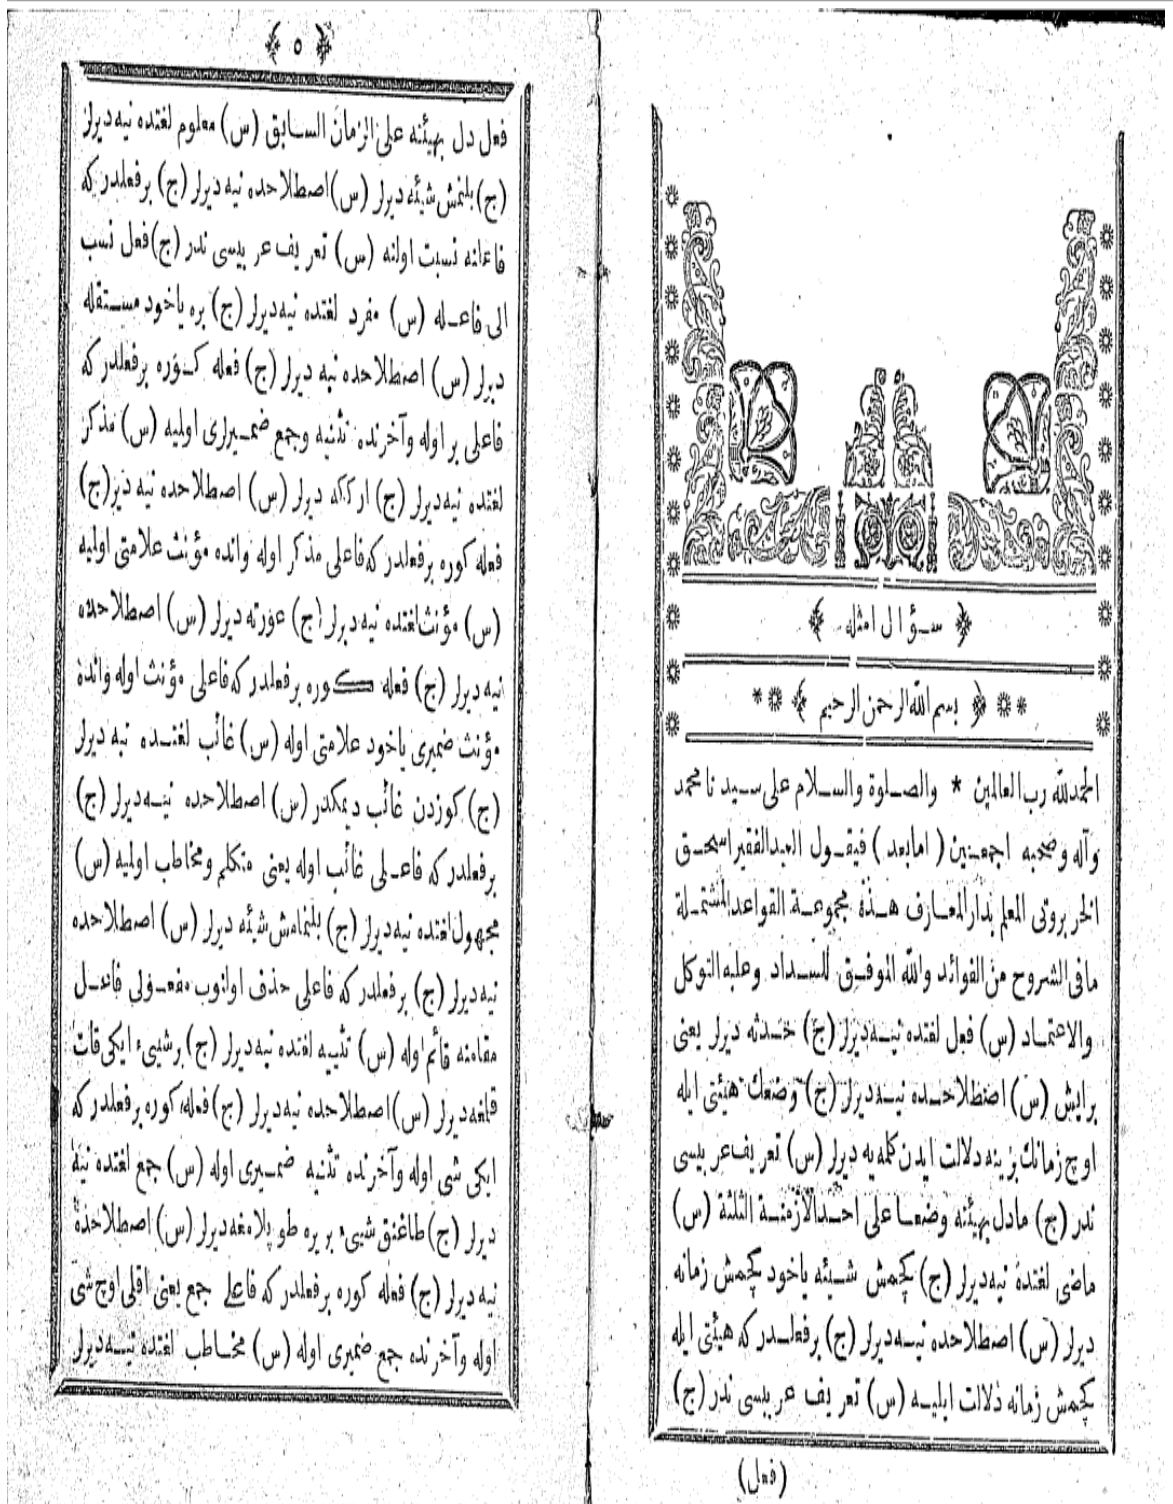 ﴿ سؤال امثله ﴾
** ﴿ بسم الله الرحمن الرحيم ﴾ **
الحمدلله رب العالمين * والصلوة والسلام على سيدنا محمد
وآله وصحبه اجمعين ( امابعد ) فيقول العبد الفقير اسحق
الخربروتى المعلم بدار المعارف هذه مجموعة القواعد المشتملة
مافى الشروح من الفوائد والله الموفق للسداد وعليه التوكل
والاعتماد (س) فعل لغتده نيه ديرلر (ج) حدثه ديرلر يعنى
برايش (س) اصطلاحده نيه ديرلر (ج) وضعك هيئتى ايله
اوچ زمانك برينه دلالت ايدن كلمه يه ديرلر (س) تعريف عربيسى
ندر (ج) مادل بهيئته وضعا على احد الازمنة الثلثة (س)
ماضى لغتده نيه ديرلر (ج) كچمش شيئه ياخود كچمش زمانه
ديرلر (س) اصطلاحده نيه ديرلر (ج) برفعلدر كه هيئتى ايله
كچمش زمانه دلالت ايليه (س) تعريف عربيسى ندر (ج)
(فعل)
﴿ ٥ ﴾
فعل دل بهيئته على الزمان السابق (س) معلوم لغتده نيه ديرلر
(ج) بلنمش شيئه ديرلر (س) اصطلاحده نيه ديرلر (ج) برفعلدر كه
فاعلنه نسبت اولنه (س) تعريف عربيسى ندر (ج) فعل نسب
الى فاعله (س) مفرد لغتده نيه ديرلر (ج) بره ياخود مستقله
ديرلر (س) اصطلاحده نيه ديرلر (ج) فعله كوره برفعلدر كه
فاعلى بر اوله وآخرنده تثنيه وجمع ضميرلرى اوليه (س) مذكر
لغتده نيه ديرلر (ج) ارككه ديرلر (س) اصطلاحده نيه ديرلر (ج)
فعله كوره برفعلدر كه فاعلى مذكر اوله وانده مؤنث علامتى اوليه
(س) مؤنث لغتده نيه ديرلر (ج) عورته ديرلر (س) اصطلاحده
نيه ديرلر (ج) فعله كوره برفعلدر كه فاعلى مؤنث اوله وانده
مؤنث ضميرى ياخود علامتى اوله (س) غائب لغتده نيه ديرلر
(ج) كوزدن غائب ديمكدر (س) اصطلاحده نيه ديرلر (ج)
برفعلدر كه فاعلى غائب اوله يعنى متكلم ومخاطب اوليه (س)
مجهول لغتده نيه ديرلر (ج) بلنمامش شيئه ديرلر (س) اصطلاحده
نيه ديرلر (ج) برفعلدر كه فاعلى حذف اولنوب مفعولى فاعل
مقامنه قائم اوله (س) تثنيه لغتده نيه ديرلر (ج) برشيىء ايكى قات
قلغه ديرلر (س) اصطلاحده نيه ديرلر (ج) فعله كوره برفعلدر كه
ايكى شى اوله وآخرنده تثنيه ضميرى اوله (س) جمع لغتده نيه
ديرلر (ج) طاغنق شيىء بريره طوپلامغه ديرلر (س) اصطلاحده
نيه ديرلر (ج) فعله كوره برفعلدر كه فاعلى جمع يعنى اقلى اوچ شى
اوله وآخرنده جمع ضميرى اوله (س) مخاطب لغتده نيه ديرلر